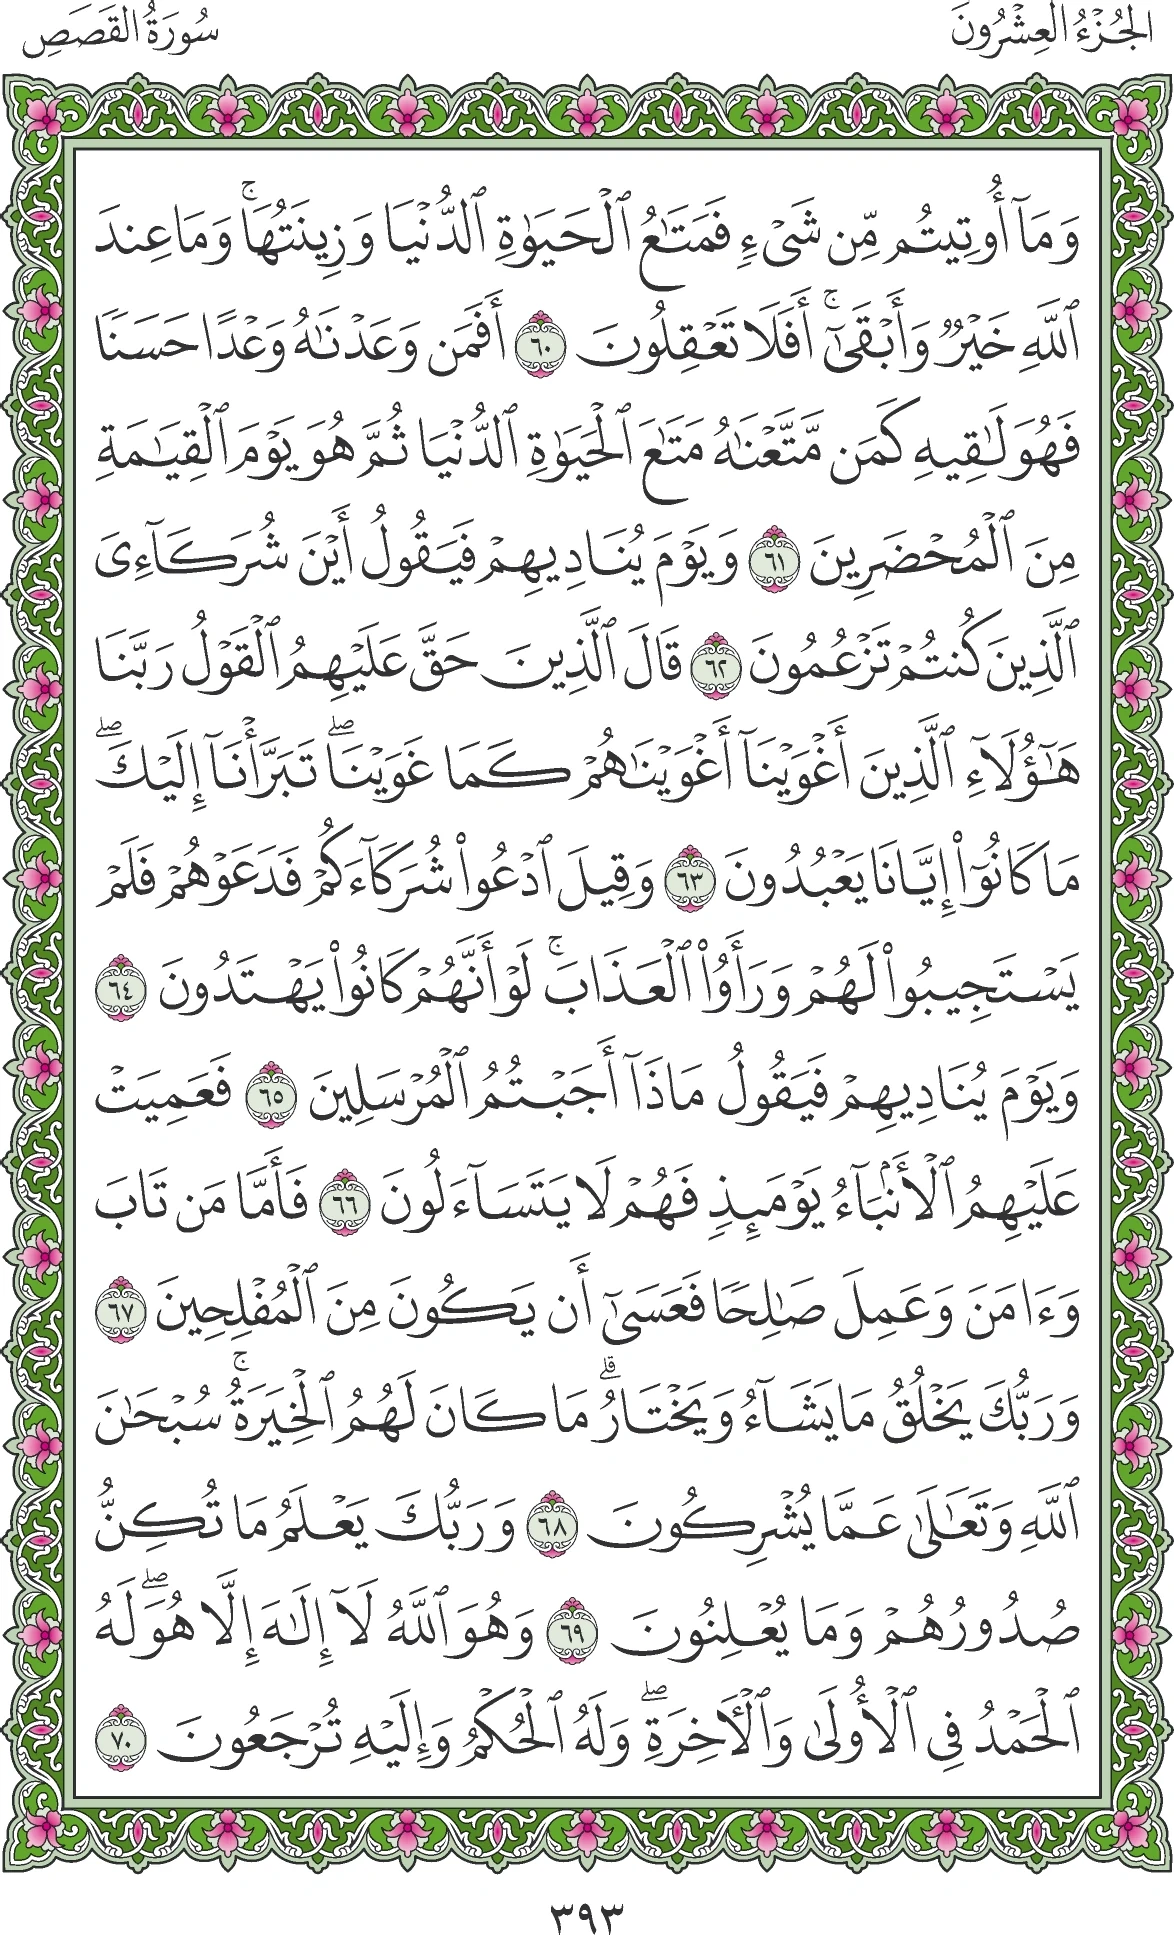 الجُزْءُ العِشْرُونَ
سُورَةُ القَصَصِ
وَمَآ أُوتِيتُم مِّن شَىْءٍ فَمَتَٰعُ ٱلْحَيَوٰةِ ٱلدُّنْيَا وَزِينَتُهَا ۚ وَمَا عِندَ
ٱللَّهِ خَيْرٌ وَأَبْقَىٰٓ ۚ أَفَلَا تَعْقِلُونَ ٦٠ أَفَمَن وَعَدْنَٰهُ وَعْدًا حَسَنًا
فَهُوَ لَٰقِيهِ كَمَن مَّتَّعْنَٰهُ مَتَٰعَ ٱلْحَيَوٰةِ ٱلدُّنْيَا ثُمَّ هُوَ يَوْمَ ٱلْقِيَٰمَةِ
مِنَ ٱلْمُحْضَرِينَ ٦١ وَيَوْمَ يُنَادِيهِمْ فَيَقُولُ أَيْنَ شُرَكَآءِىَ
ٱلَّذِينَ كُنتُمْ تَزْعُمُونَ ٦٢ قَالَ ٱلَّذِينَ حَقَّ عَلَيْهِمُ ٱلْقَوْلُ رَبَّنَا
هَٰٓؤُلَآءِ ٱلَّذِينَ أَغْوَيْنَآ أَغْوَيْنَٰهُمْ كَمَا غَوَيْنَا ۖ تَبَرَّأْنَآ إِلَيْكَ ۖ
مَا كَانُوٓا۟ إِيَّانَا يَعْبُدُونَ ٦٣ وَقِيلَ ٱدْعُوا۟ شُرَكَآءَكُمْ فَدَعَوْهُمْ فَلَمْ
يَسْتَجِيبُوا۟ لَهُمْ وَرَأَوُا۟ ٱلْعَذَابَ ۚ لَوْ أَنَّهُمْ كَانُوا۟ يَهْتَدُونَ ٦٤
وَيَوْمَ يُنَادِيهِمْ فَيَقُولُ مَاذَآ أَجَبْتُمُ ٱلْمُرْسَلِينَ ٦٥ فَعَمِيَتْ
عَلَيْهِمُ ٱلْأَنۢبَآءُ يَوْمَئِذٍ فَهُمْ لَا يَتَسَآءَلُونَ ٦٦ فَأَمَّا مَن تَابَ
وَءَامَنَ وَعَمِلَ صَٰلِحًا فَعَسَىٰٓ أَن يَكُونَ مِنَ ٱلْمُفْلِحِينَ ٦٧
وَرَبُّكَ يَخْلُقُ مَا يَشَآءُ وَيَخْتَارُ ۗ مَا كَانَ لَهُمُ ٱلْخِيَرَةُ ۚ سُبْحَٰنَ
ٱللَّهِ وَتَعَٰلَىٰ عَمَّا يُشْرِكُونَ ٦٨ وَرَبُّكَ يَعْلَمُ مَا تُكِنُّ
صُدُورُهُمْ وَمَا يُعْلِنُونَ ٦٩ وَهُوَ ٱللَّهُ لَآ إِلَٰهَ إِلَّا هُوَ ۖ لَهُ
ٱلْحَمْدُ فِى ٱلْأُولَىٰ وَٱلْءَاخِرَةِ ۖ وَلَهُ ٱلْحُكْمُ وَإِلَيْهِ تُرْجَعُونَ ٧٠
٣٩٣